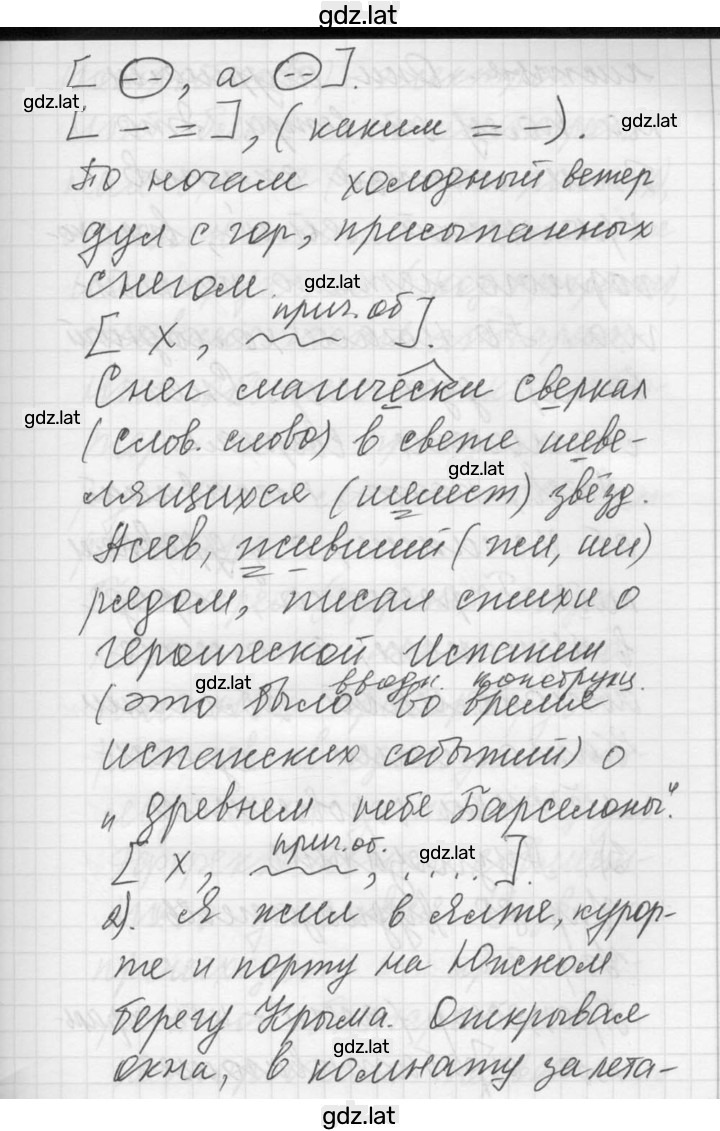 gdz.lat
[ (--), а (--) ].
gdz.lat
[ – = ], ( каким = – ).
gdz.lat
По ночам холодный ветер
дул с гор, присыпанных
снегом.
gdz.lat
прич. об
[ х, ~~~ ].
Снег магически сверкал
gdz.lat
(слов. слово) в свете шеве-
gdz.lat
лящихся (шелест) звёзд.
Асеев, живший (жи, ши)
рядом, писал стихи о
героической Испании
gdz.lat
вводн. конструкц.
(это было во время
испанских событий) о
„древнем небе Барселоны".
прич. об.
gdz.lat
[ х, ~~~, ..... ].
2). Я жил в Ялте, курор-
те и порту на Южном
берегу Крыма. Открывал
gdz.lat
окна, в комнату залета-
gdz.lat